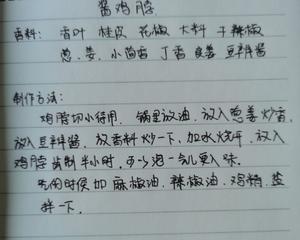 酱鸡脖
香料：香叶 桂皮 花椒 大料 干辣椒
葱、姜、小茴香 丁香 良姜 豆瓣酱
制作方法：
鸡脖切小待用，锅里放油，放入葱姜炒香，
放入豆瓣酱，放香料炒一下，加水烧开，放入
鸡脖酱制半小时，可以泡一会儿更入味。
吃的时候加 麻椒油，辣椒油，鸡精，盐
拌一下。